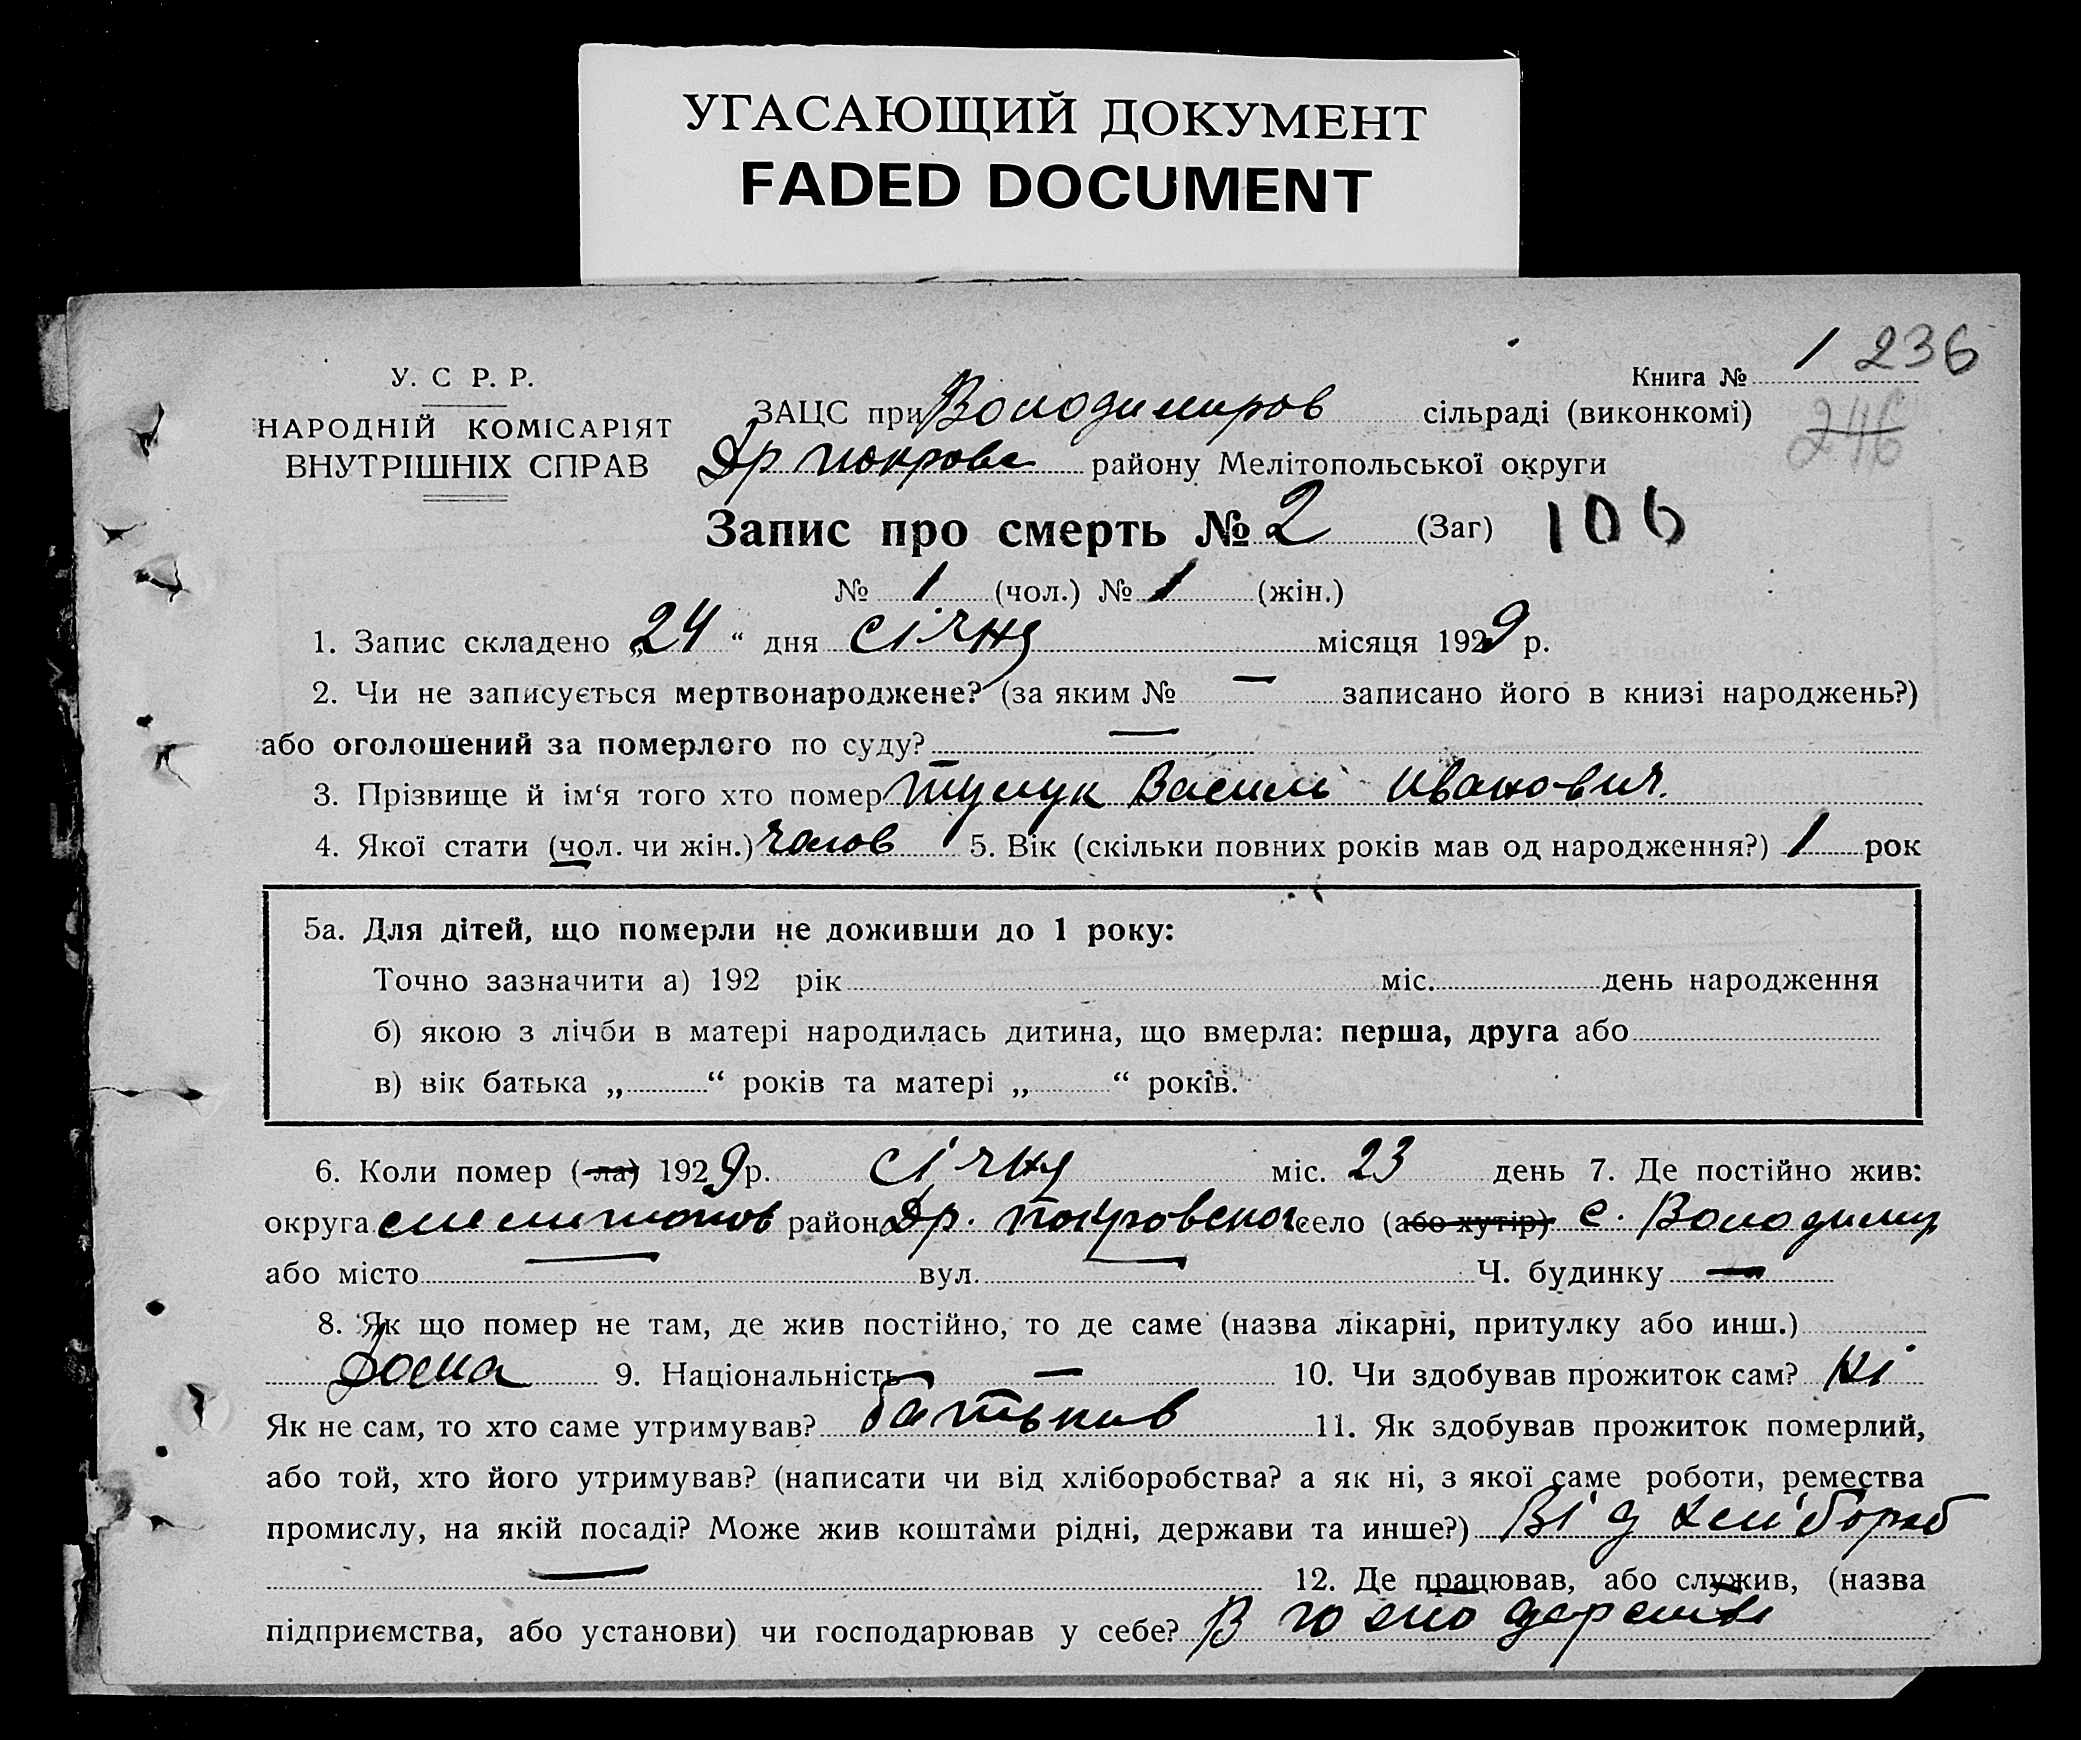 УГАСАЮЩИЙ ДОКУМЕНТ
FADED DOCUMENT
У. С Р. Р.
НАРОДНІЙ КОМІСАРІЯТ
ВНУТРІШНІХ СПРАВ
Книга № 1 236
ЗАЦС при Володимиров сільраді (виконкомі)
246
Др покровс району Мелітопольської округи
Запис про смерть № 2 (Заг) 106
№ 1 (чол.) № 1 (жін.)
1. Запис складено „24“ дня січня місяця 1929 р.
2. Чи не записується мертвонароджене? (за яким № — записано його в книзі народжень?)
або оголошений за померлого по суду? —
3. Прізвище й ім‘я того хто помер Василь Иванович.
4. Якої стати (чол. чи жін.) чолов 5. Вік (скільки повних років мав од народження?) 1 рок
5а. Для дітей, що померли не доживши до 1 року:
Точно зазначити а) 192 рік міс. день народження
б) якою з лічби в матері народилась дитина, що вмерла: перша, друга або
в) вік батька „ “ років та матері „ “ років.
6. Коли помер (-ла) 1929 р. січня міс. 23 день 7. Де постійно жив:
округа району Др. Покровског село (або хутір) с. Володимир
або місто — вул. — Ч. будинку —
8. Як що помер не там, де жив постійно, то де саме (назва лікарні, притулку або инш.)
Дома 9. Національність — 10. Чи здобував прожиток сам? Ні
Як не сам, то хто саме утримував? батьків 11. Як здобував прожиток померлий,
або той, хто його утримував? (написати чи від хліборобства? а як ні, з якої саме роботи, ремества
промислу, на якій посаді? Може жив коштами рідні, держави та инше?) Від хлібороб
— 12. Де працював, або служив, (назва
підприємства, або установи) чи господарював у себе? В